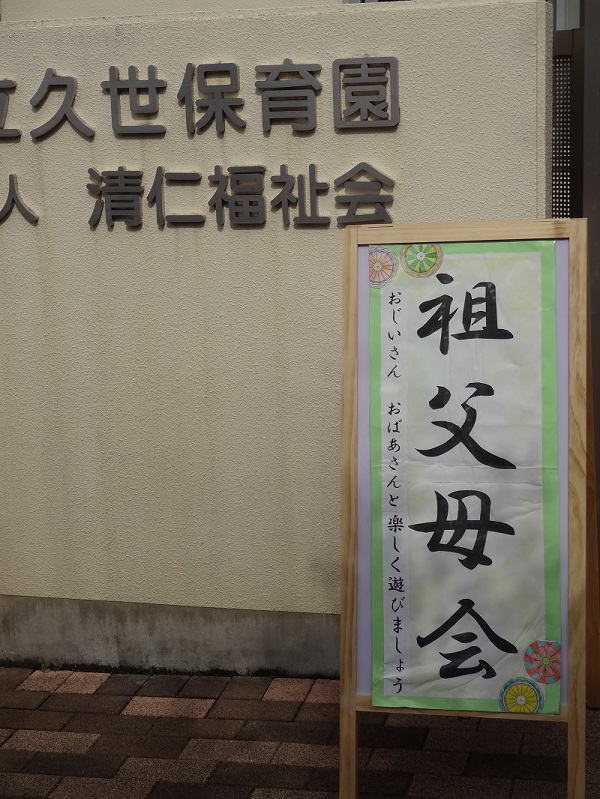 立久世保育園
人 清仁福祉会
祖父母会
おじいさん おばあさんと楽しく遊びましょう